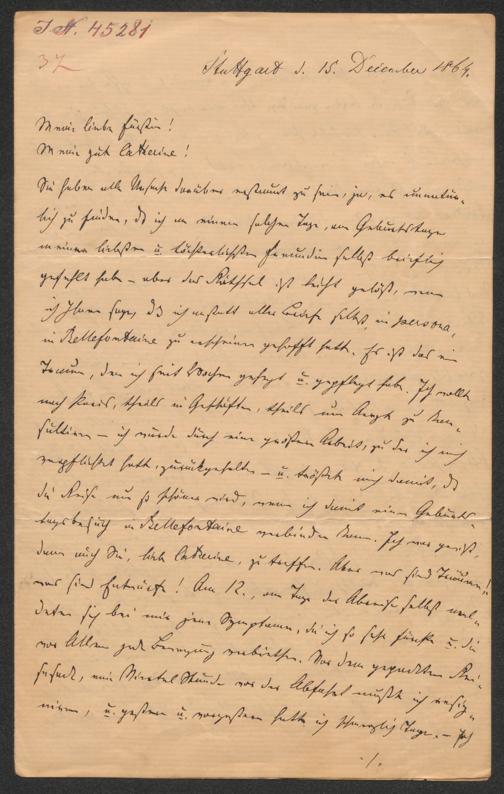 J. N. 45281
37
Stuttgart d. 15. December 1864.
Meine liebe Fürstin!
Meine gute Catherine!
Sie haben alle Ursache darüber erstaunt zu sein, ja, es unnatür-
lich zu finden, dß ich an einem solchen Tage, am Geburtstage
meiner liebsten u. köstlichsten Freundin selbst brieflich
gefehlt habe – aber das Räthsel ist leicht gelöst, wenn
ich Ihnen sage, dß ich anstatt aller Briefe selbst, in persona,
in Bellefontaine zu erscheinen gehofft hatte. Es ist das ein
Traum, den ich seit Wochen gehegt u. gepflegt habe. Ich wollte
nach Paris, theils in Geschäften, theils um Aerzte zu kon-
sultiren – ich wurde durch eine größere Arbeit, zu der ich mich
verpflichtet hatte, zurückgehalten – u. tröstete mich damit, dß
die Reise nur so schöner wird, wenn ich damit einen Geburts-
tagsbesuch in Bellefontaine verbinden kann. Ich war gewiß,
dann auch Sie, liebe Catherine, zu treffen. Aber was sind Träume!
was sind Entwürfe! Am 12., am Tage der Abreise selbst mel-
deten sich bei mir jene Symptome, die ich so sehr fürchte u. die
vor Allem jede Bewegung verbieten. Vor dem gepackten Rei-
sesack, eine Viertel Stunde vor der Abfahrt mußte ich resig-
niren, u. gestern u. vorgestern hatte ich Tage. – Ich
./.